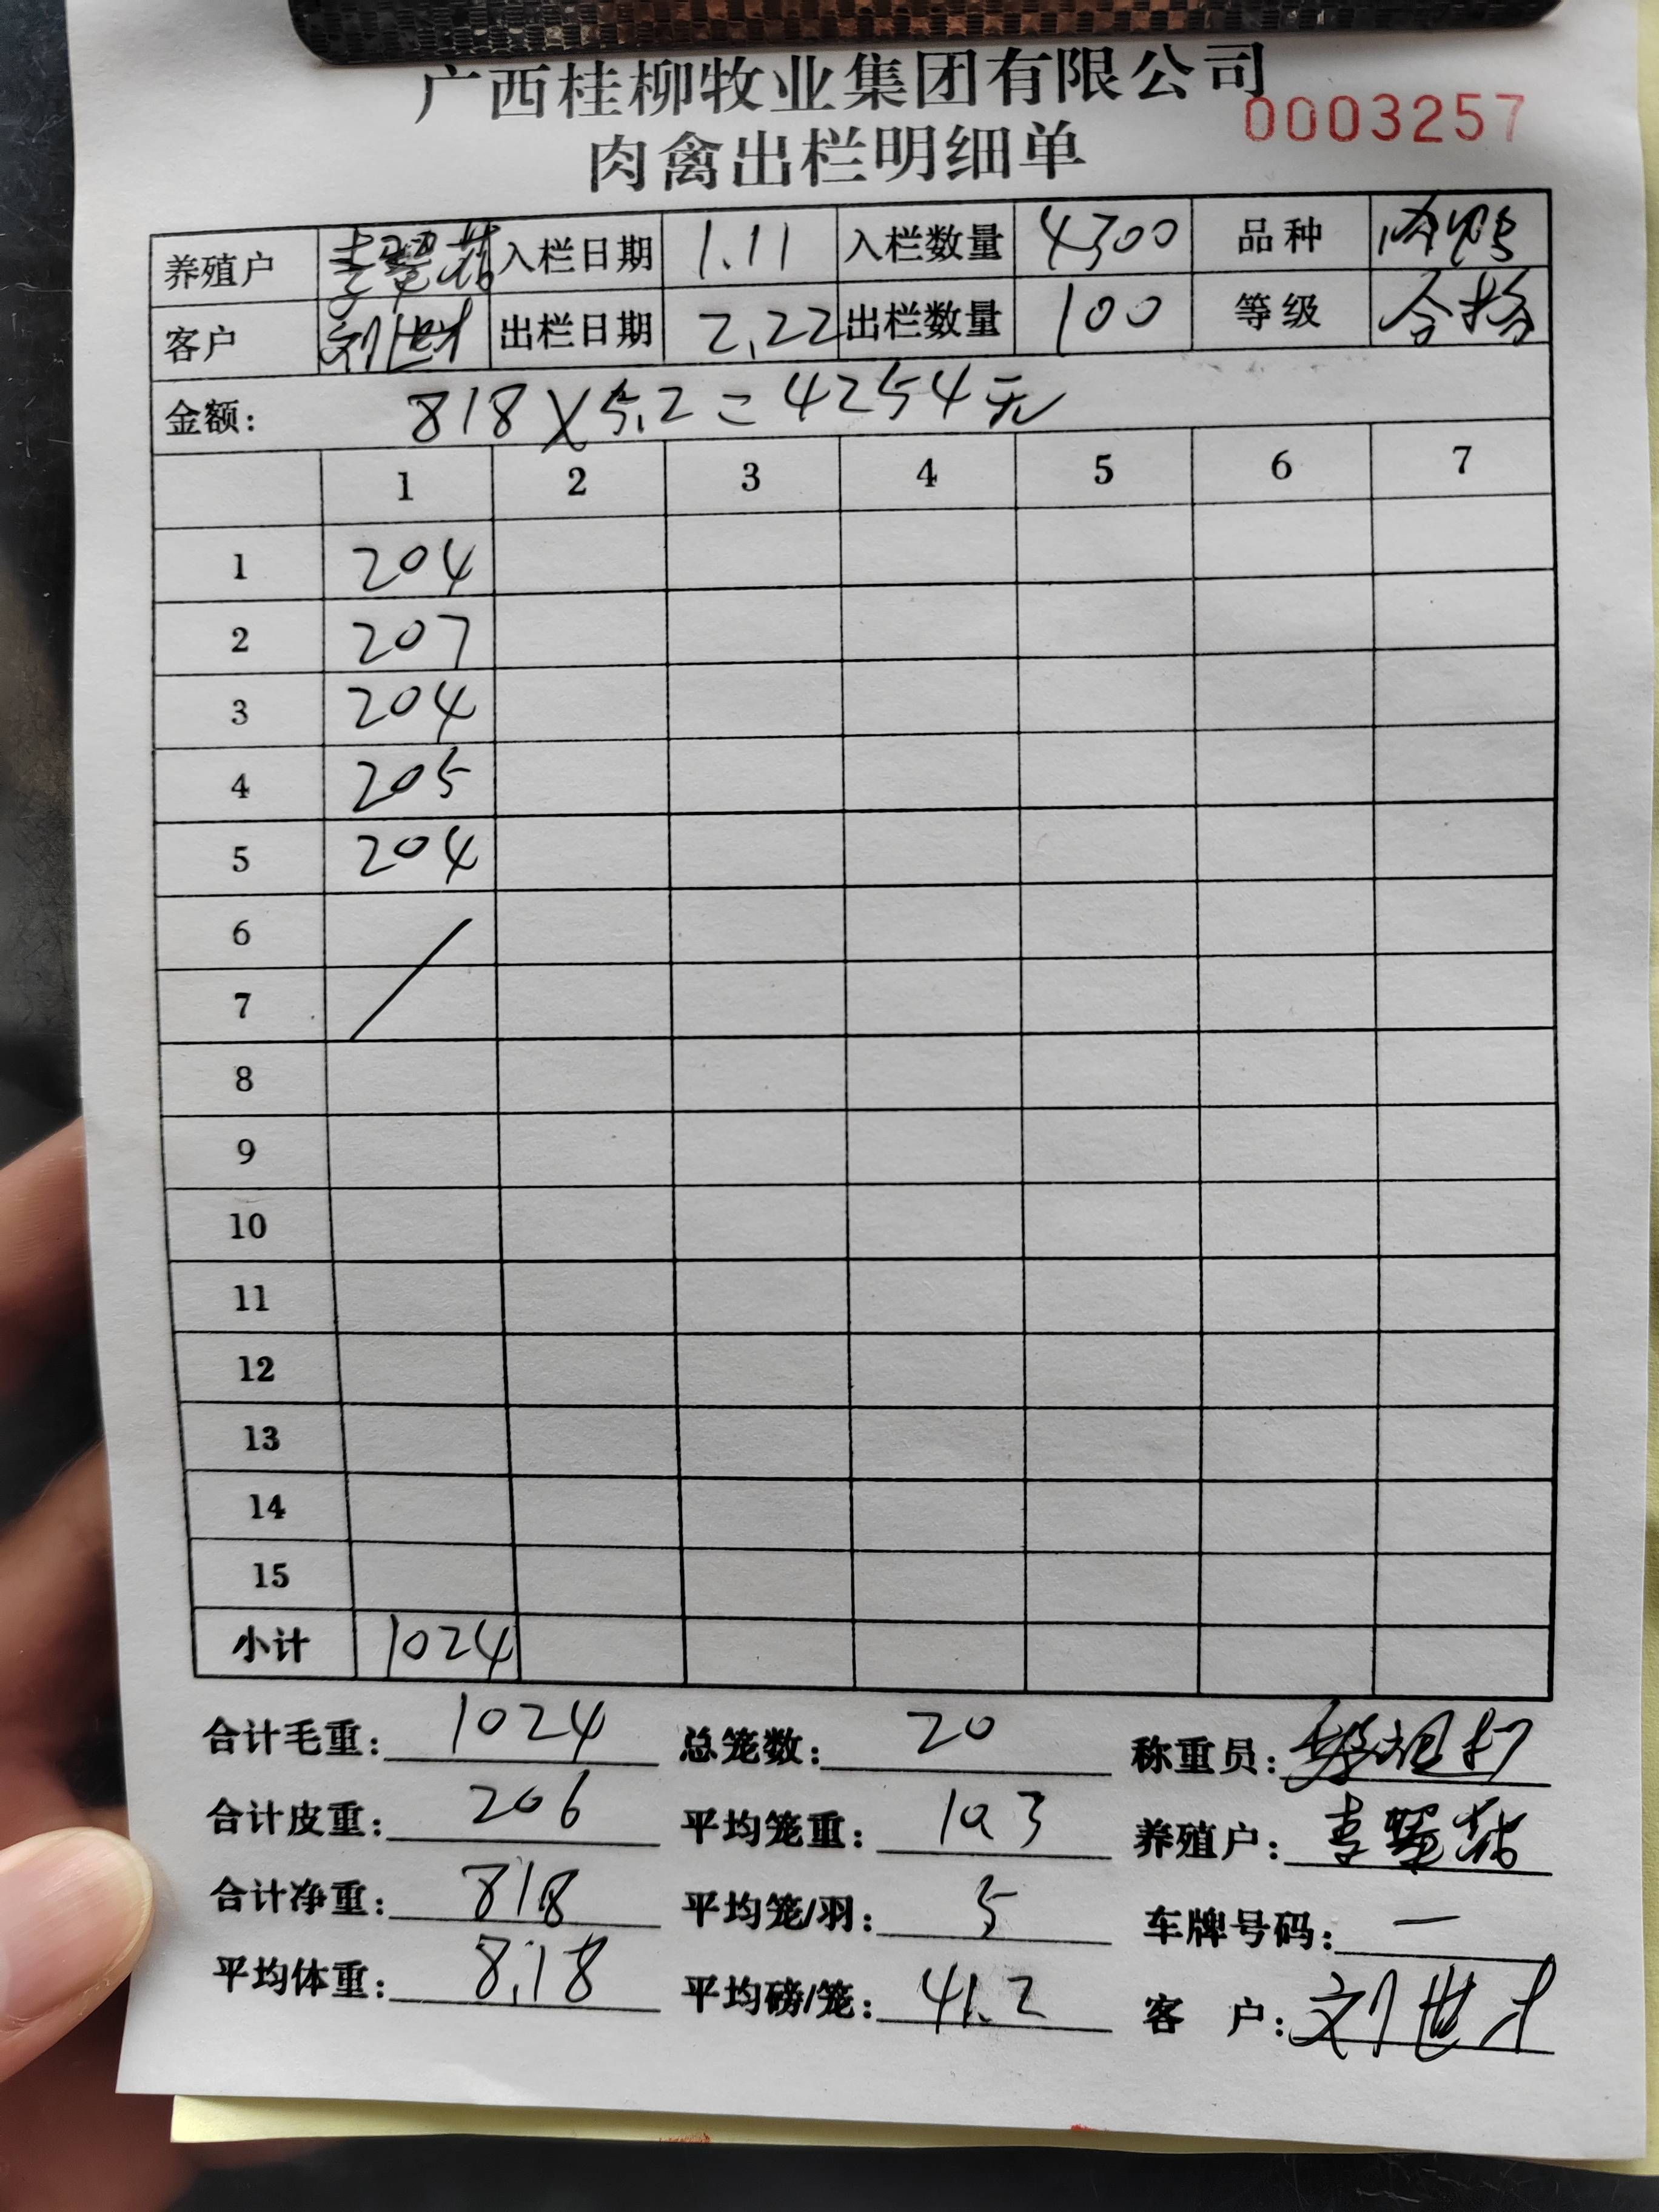 广西桂柳牧业集团有限公司
0003257
肉禽出栏明细单
养殖户 入栏日期 1.11 入栏数量 4300 品种 肉鸭
客户 刘世才 出栏日期 2.22 出栏数量 100 等级 合格
金额: 818×5.2=4254元
1 2 3 4 5 6 7
1 204
2 207
3 204
4 205
5 204
6
7
8
9
10
11
12
13
14
15
小计 1024
合计毛重: 1024 总笼数: 20 称重员:
合计皮重: 206 平均笼重: 10.3 养殖户:
合计净重: 818 平均笼/羽: 5 车牌号码: —
平均体重: 8.18 平均磅/笼: 41.2 客 户: 刘世才